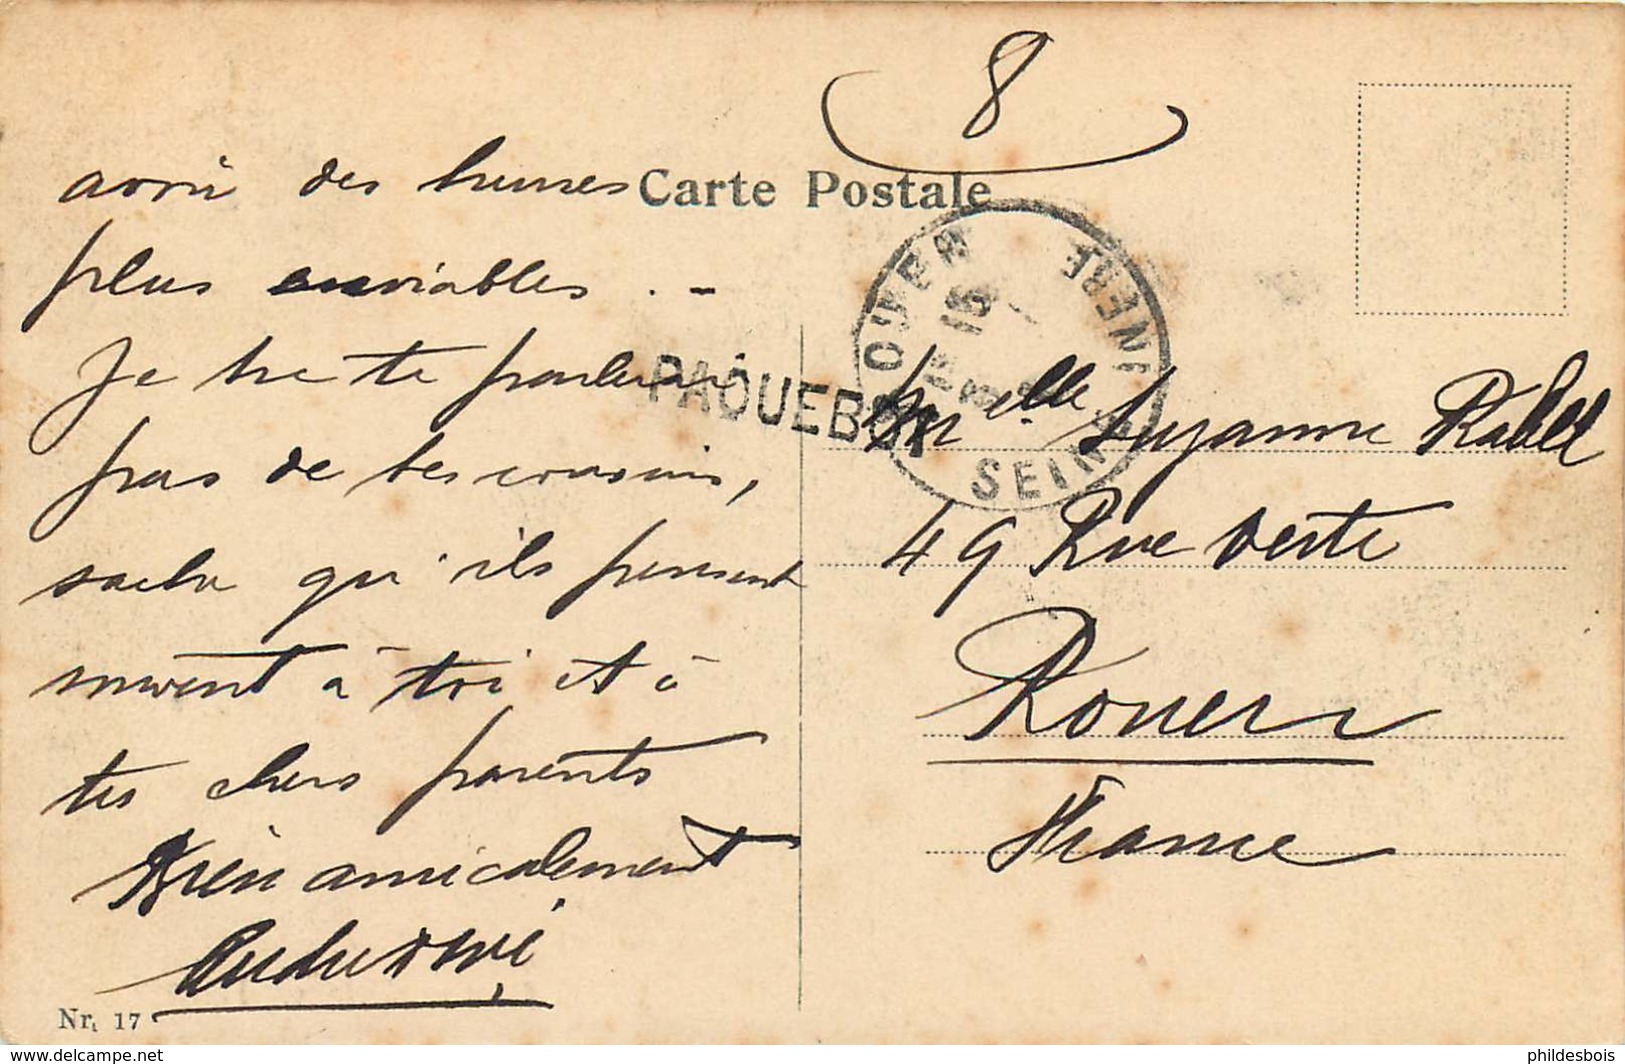 8
Carte Postale
avoir des heures
plus enviables . -
Je ne te parlerai
pas de tes cousins,
sache qu'ils pensent
souvent à toi et à
tes chers parents
Bien amicalement
Nr. 17
PAQUEBOT
ROUEN
SEINE INFRE
Melle Suzanne Rabel
49 Rue Verte
Rouen
France
www.delcampe.net
phildesbois